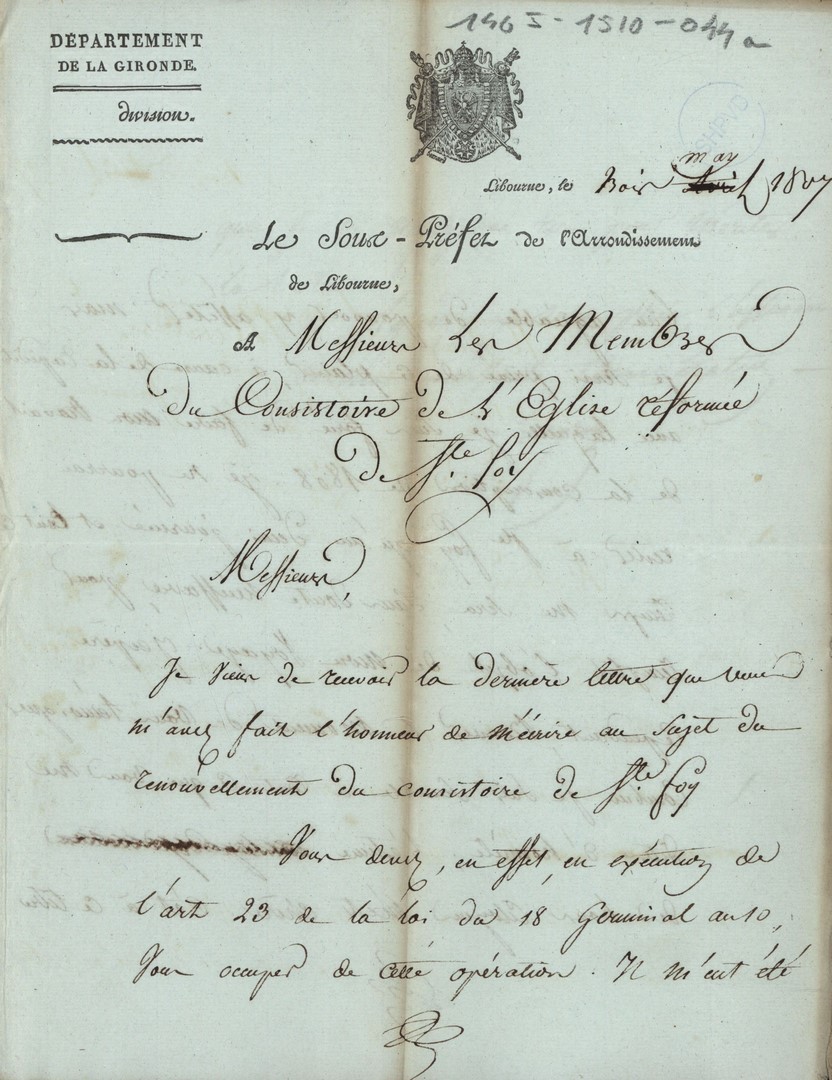 146 I - 1510 - 044 a
DÉPARTEMENT
DE LA GIRONDE.
division.
may
Libourne, le trois Avril 1807
Le Sous-Préfet de l'Arrondissement
de Libourne,
A Messieurs Les Membres
du Consistoire de L'Eglise réformée
de Ste. foy
Messieurs,
Je viens de recevoir la derniere lettre que vous
m'avez fait l'honneur de m'écrire au sujet du
renouvellement du consistoire de Ste. foy
Vous devez, en effet, en exécution de
l'art 23 de la loi du 18 Germinal an 10,
vous occuper de cette opération. Il m'eut été